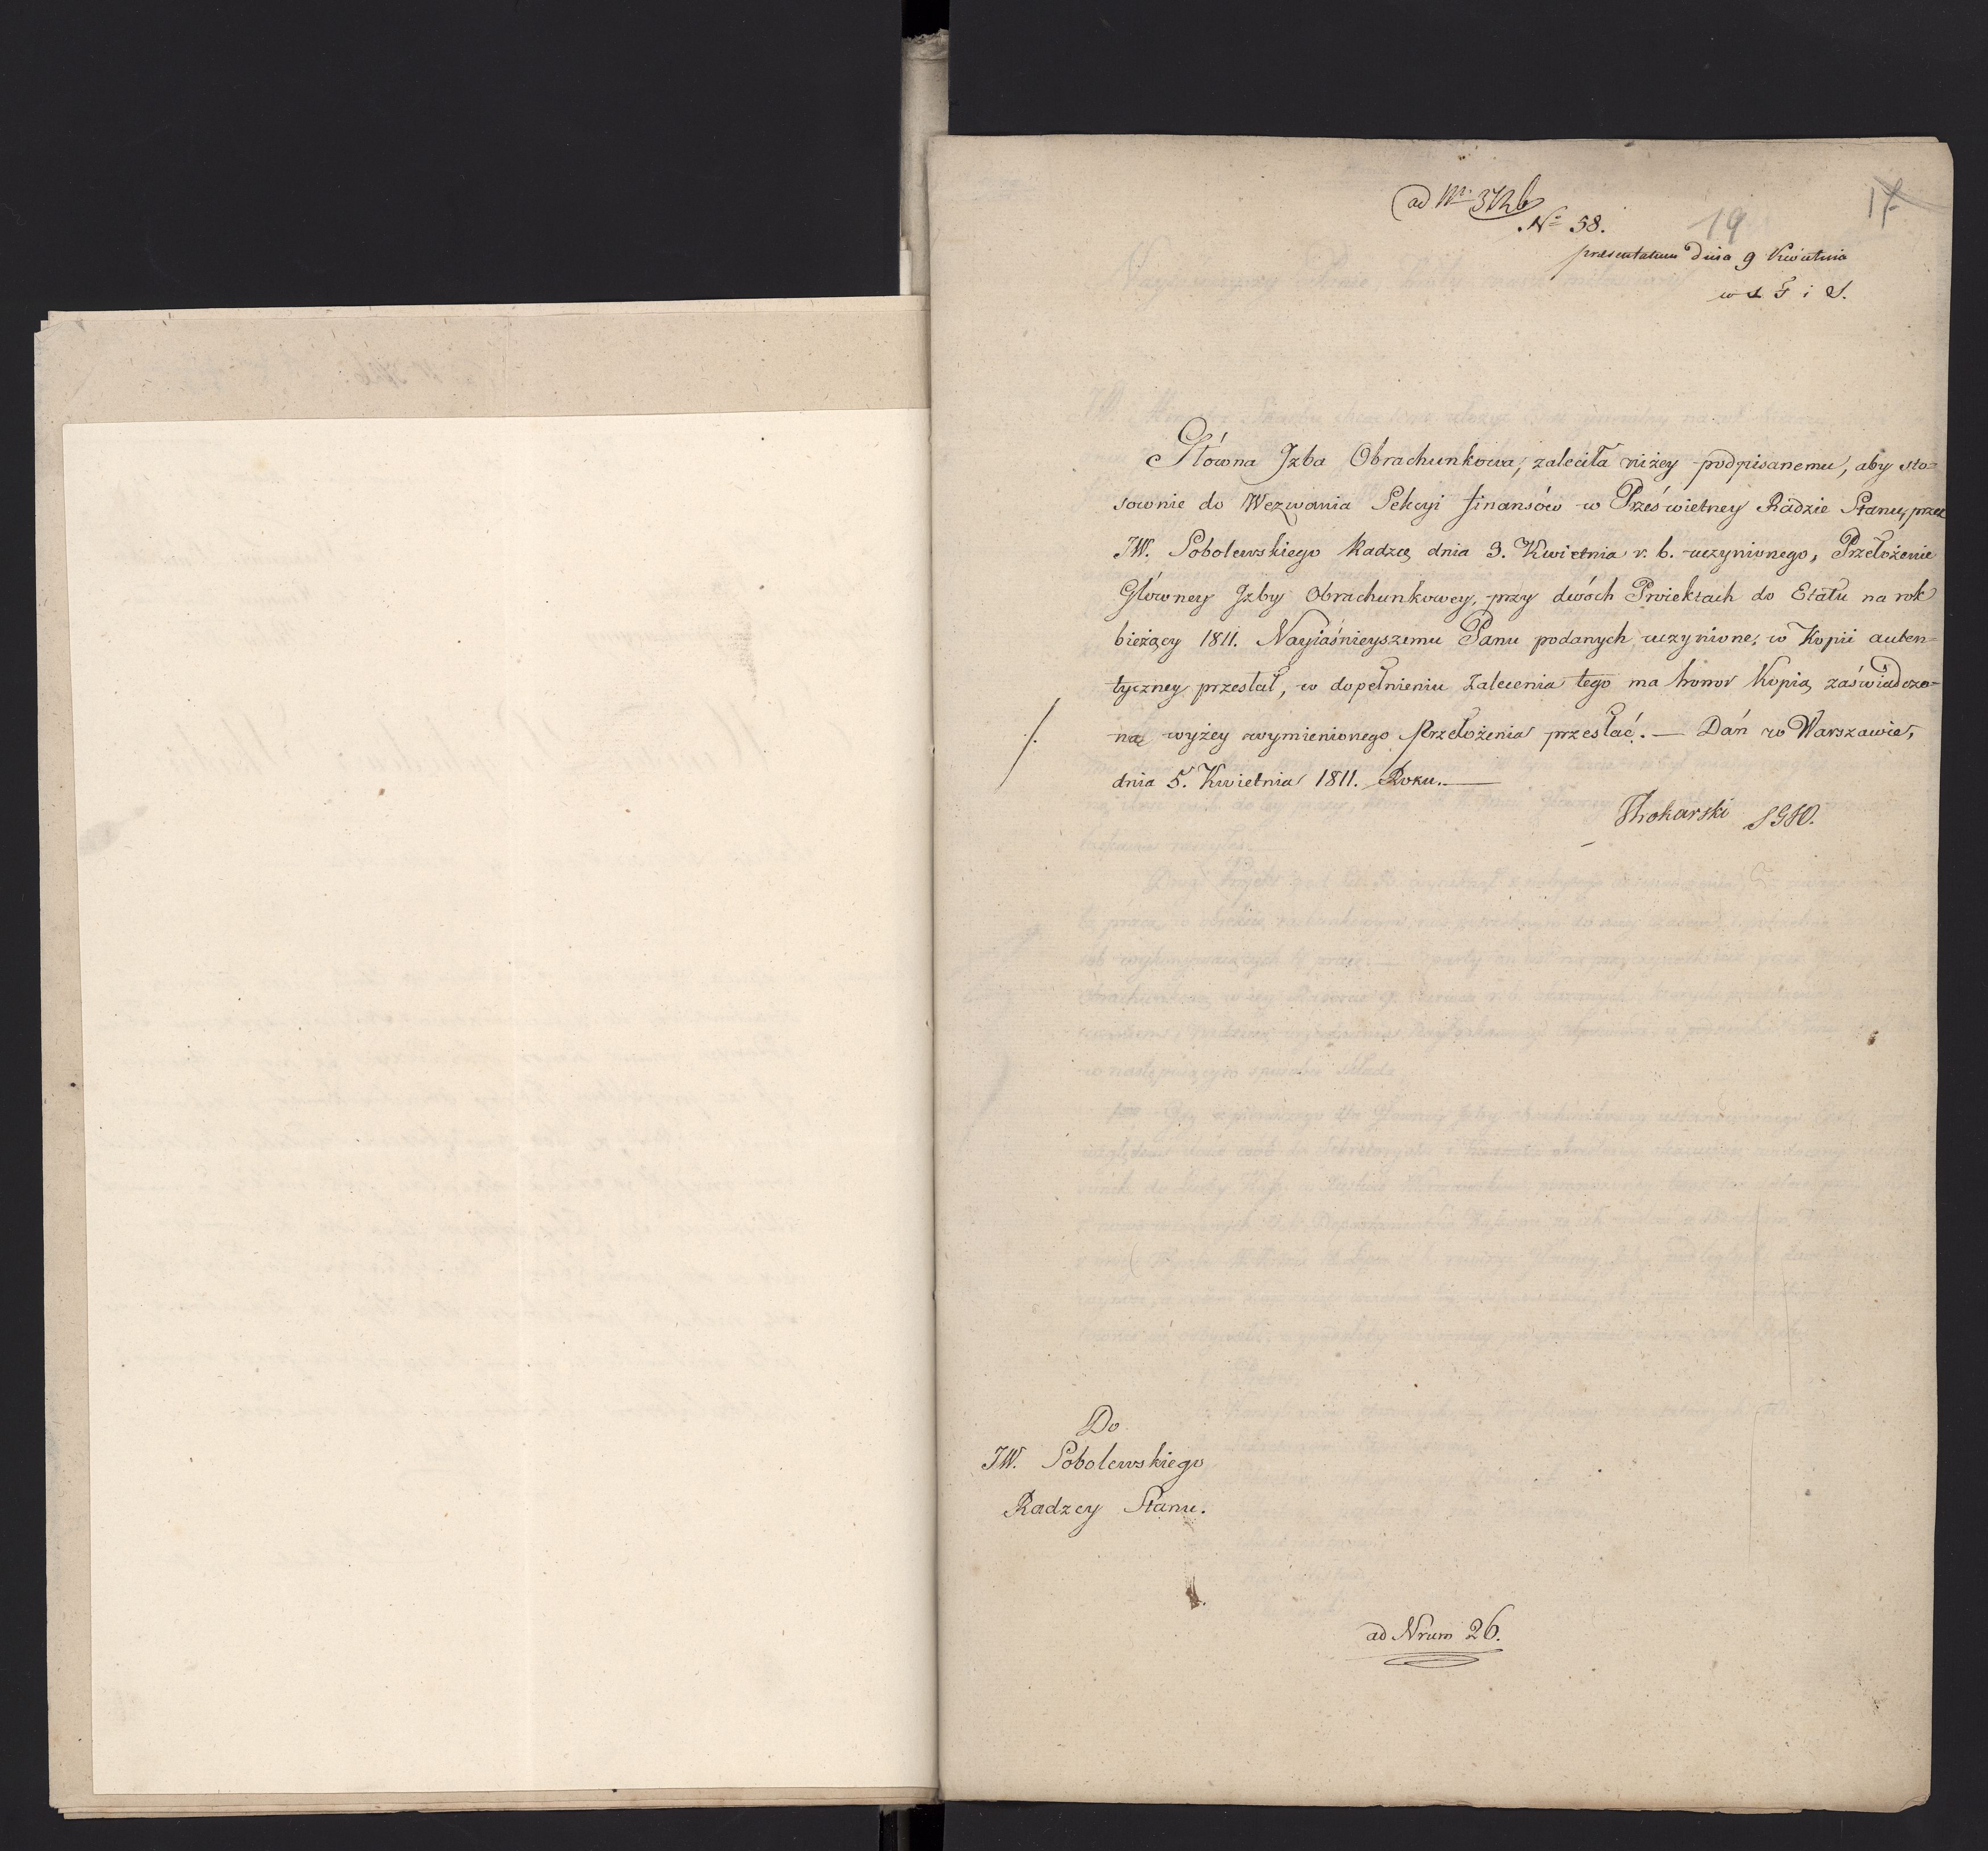 ad Nr 372b
No 58.
19
17
praesentatum dnia 9 Kwietnia
w S F i S.
Główna Jzba Obrachunkowa, zaleciła niżey podpisanemu, aby sto=
sownie do Wezwania Sekcyi finansów w Prześwietney Radzie Stanu, przez
JW. Sobolewskiego Radzcę dnia 3. Kwietnia r. b. uczynionego, Przełożenie
Główney Jzby Obrachunkowey, przy dwóch Proiektach do Etatu na rok
bieżący 1811. Nayiaśnieyszemu Panu podanych uczynione, w Kopii auten=
tyczney przesłał, w dopełnieniu zalecenia tego ma honor Kopią zaświadczo=
ną wyżey wymienionego Przełożenia przesłać. — Dań w Warszawie,
dnia 5. Kwietnia 1811. Roku. —
Do
JW. Sobolewskiego
Radzcy Stanu.
ad Nrum 26.